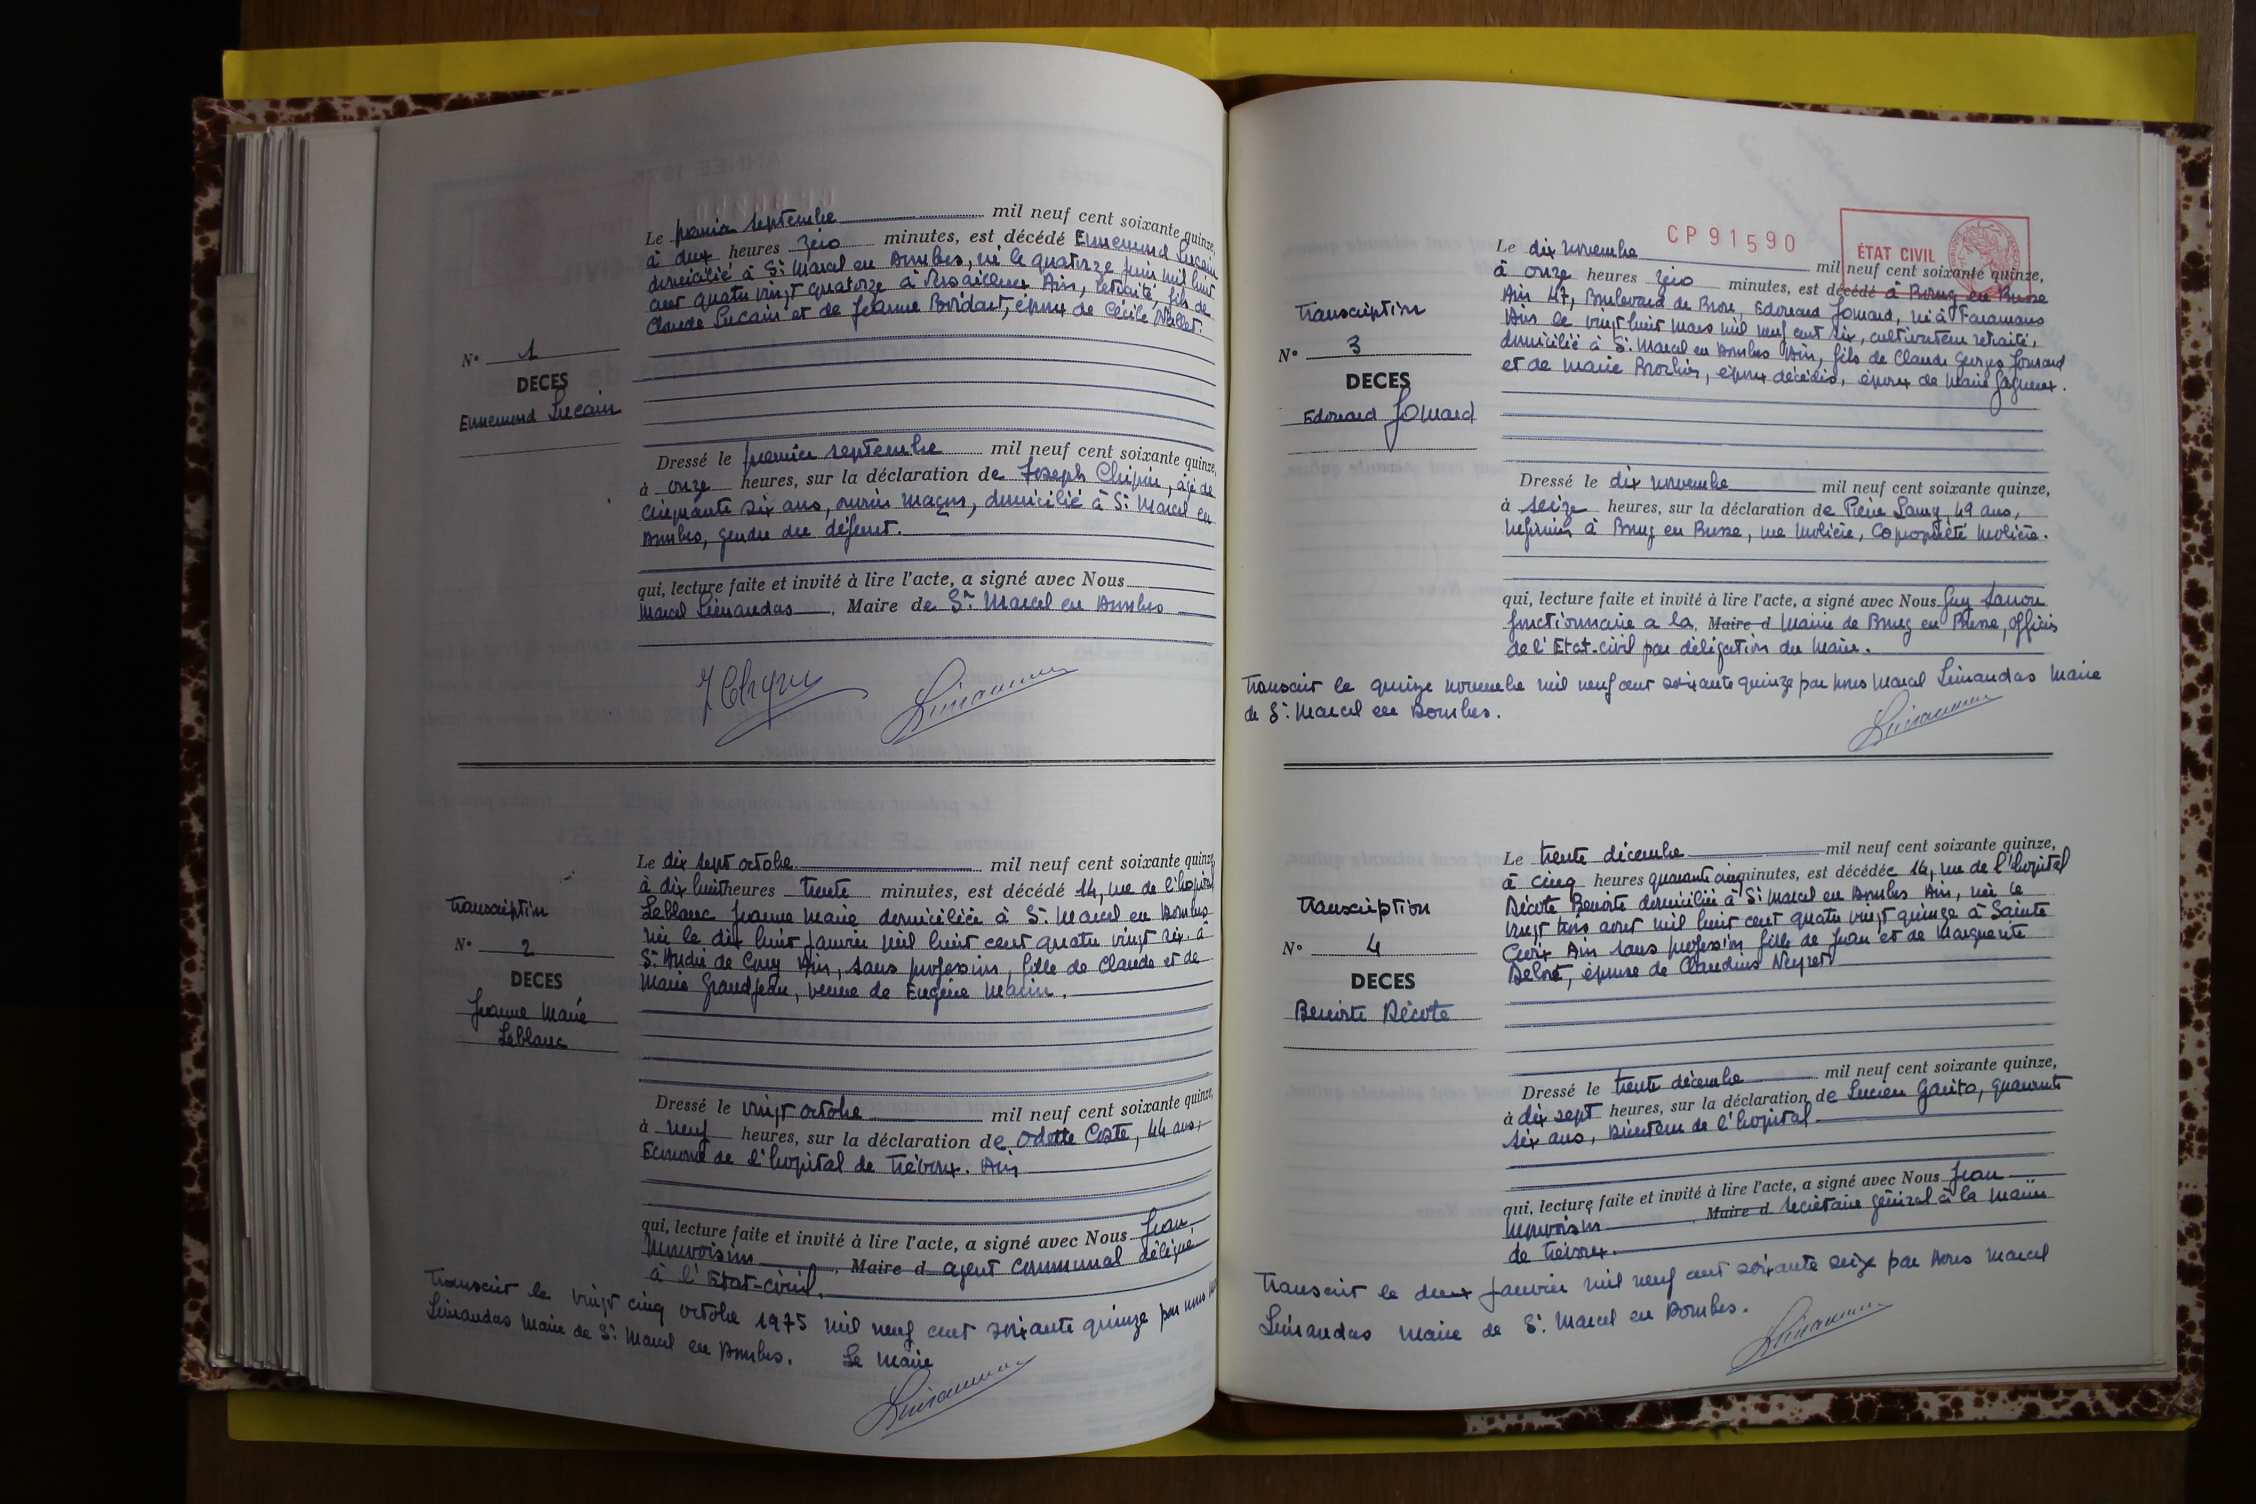 Le premier septembre mil neuf cent soixante quinze,
à deux heures zéro minutes, est décédé Ennemond Lucain
domicilié à St Marcel en Dombes, né le quatorze juin mil huit
cent quatre vingt quatorze à Ain, retraité, fils de
Claude Lucain et de Jeanne époux de Cécile
N° 1
DECES
Ennemond Lucain
Dressé le premier septembre mil neuf cent soixante quinze,
à onze heures, sur la déclaration de Joseph Chipier, âgé de
cinquante six ans, ouvrier maçon, domicilié à St Marcel en
Dombes, gendre du défunt.
qui, lecture faite et invité à lire l'acte, a signé avec Nous
Marcel Limandas, Maire de St Marcel en Dombes
Le dix sept octobre mil neuf cent soixante quinze,
à dix huit heures trente minutes, est décédé 14, rue de l'hopital
Leblanc Jeanne Marie domiciliée à St Marcel en Dombes
née le dix huit janvier mil huit cent quatre vingt six à
St André de Corcy Ain, sans profession, fille de Claude et de
Marie Grandjean, veuve de Eugène
Transcription
N° 2
DECES
Jeanne Marie
Leblanc
Dressé le vingt octobre mil neuf cent soixante quinze,
à neuf heures, sur la déclaration de Odette Coste, 44 ans,
Econome de l'hopital de Trévoux. Ain
qui, lecture faite et invité à lire l'acte, a signé avec Nous Jean
Monvoisin, Maire d agent communal délégué
à l'Etat-civil.
Transcrit le vingt cinq octobre 1975 mil neuf cent soixante quinze par nous
Limandas Maire de St Marcel en Dombes. Le Maire
CP91590
ÉTAT CIVIL
Le dix novembre mil neuf cent soixante quinze,
à onze heures zéro minutes, est décédé à Bourg en Bresse
Ain 47, Boulevard de Brou, Edouard Jomard, né à Faramans
Ain le vingt huit mars mil neuf cent six, cultivateur retraité,
domicilié à St Marcel en Dombes Ain, fils de Claude Georges Jomard
et de Marie époux décédés, époux de Marie
Transcription
N° 3
DECES
Edouard Jomard
Dressé le dix novembre mil neuf cent soixante quinze,
à seize heures, sur la déclaration de Pierre 49 ans,
infirmier à Bourg en Bresse, rue Molière, Copropriété Molière.
qui, lecture faite et invité à lire l'acte, a signé avec Nous Guy
fonctionnaire a la, Maire d Mairie de Bourg en Bresse, officier
de l'Etat-civil par délégation du Maire.
Transcrit le quinze novembre mil neuf cent soixante quinze par nous Marcel Limandas Maire
de St Marcel en Dombes.
Le trente décembre mil neuf cent soixante quinze,
à cinq heures quarante cinq minutes, est décédée 14, rue de l'hopital
Décote Benoite domiciliée à St Marcel en Dombes Ain, née le
vingt trois aout mil huit cent quatre vingt quinze à Sainte
Croix Ain sans profession fille de Jean et de Marguerite
épouse de Claudius Neyret
Transcription
N° 4
DECES
Benoite Décote
Dressé le trente décembre mil neuf cent soixante quinze,
à dix sept heures, sur la déclaration de Lucien quarante
six ans, Directeur de l'hopital
qui, lecture faite et invité à lire l'acte, a signé avec Nous Jean
Monvoisin. Maire d secrétaire général à la Mairie
de Trévoux.
Transcrit le deux janvier mil neuf cent soixante seize par nous Marcel
Limandas Maire de St Marcel en Dombes.